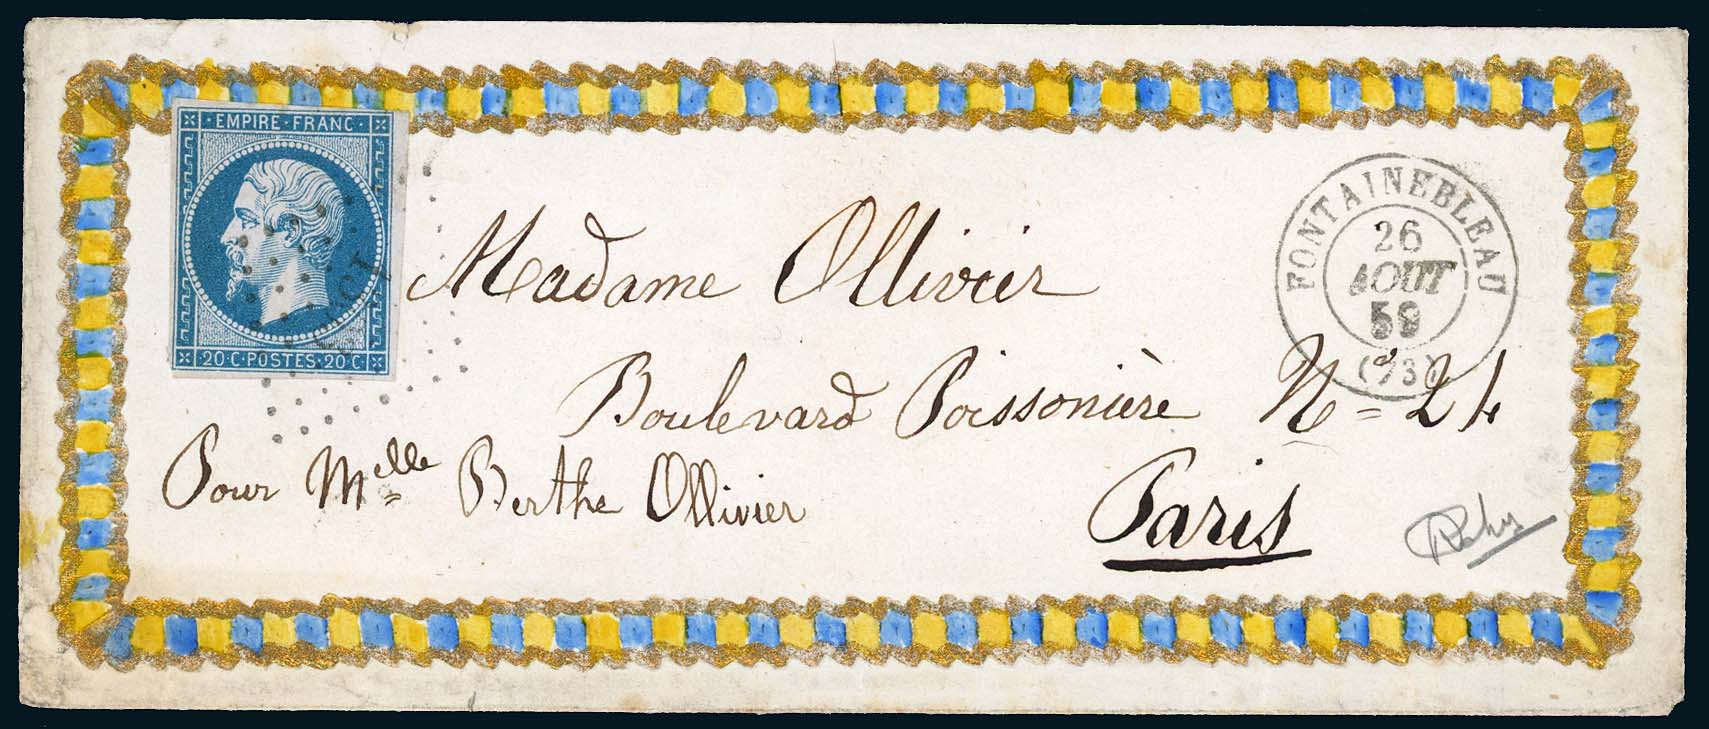 EMPIRE · FRANC ·
20 · C · POSTES · 20 · C ·
FONTAINEBLEAU
26
AOUT
59
(73)
Madame Ollivier
Boulevard Poissonière N° = 24
Pour Melle Berthe Ollivier
Paris